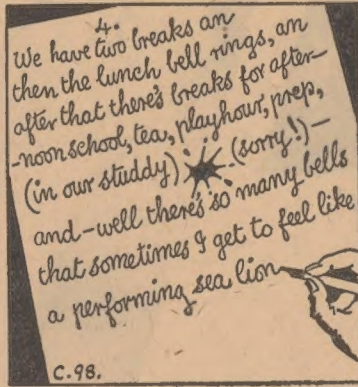 4.
We have two breaks an
then the lunch bell rings, an
after that there's breaks for after-
-noon school, tea, playhour, prep,
(in our studdy) (sorry!)-
and-well there's so many bells
that sometimes I get to feel like
a performing sea lion
C.98.